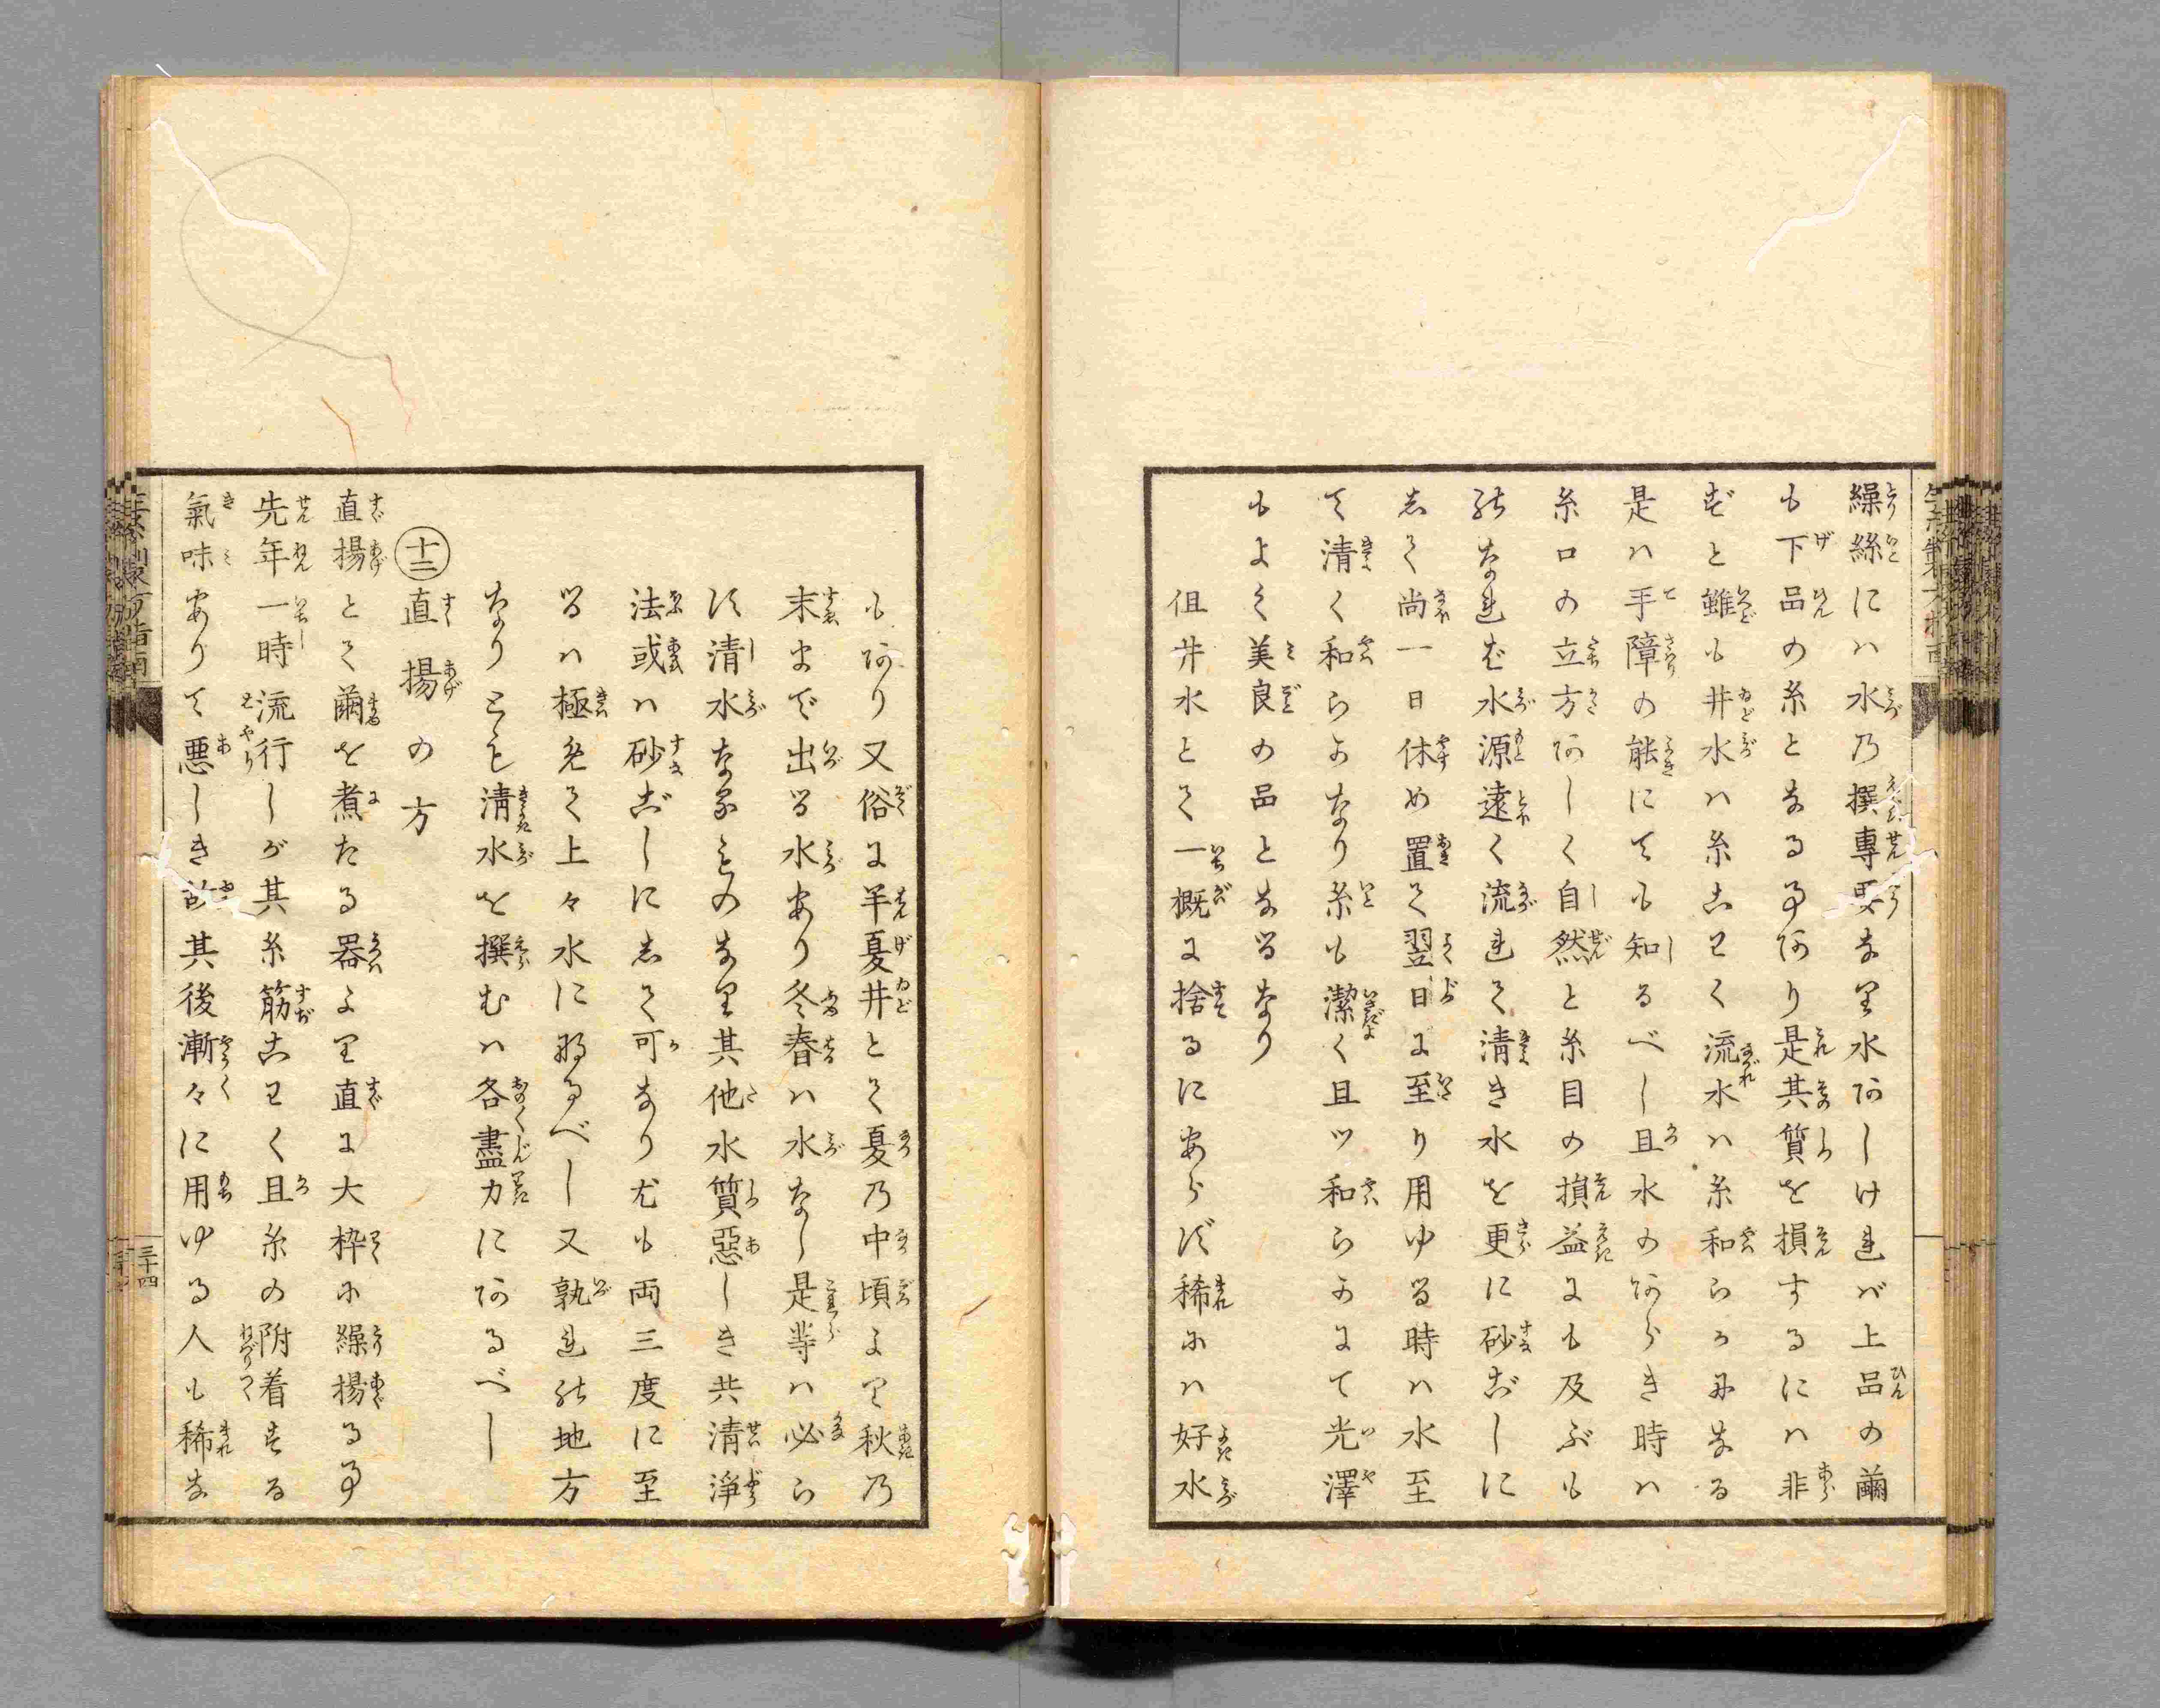 繰絲にハ水乃撰專要なり水あしけれバ上品の繭
も下品の糸となる事あり是其質を損するにハ非
ずと雖も井水ハ糸こわく流水ハ糸和らかになる
是ハ手障の能にても知るべし且水のあらき時ハ
糸口の立方あしく自然と糸目の損益にも及ぶも
のなれど水源遠く流れて清き水を更に砂ごしに
して尚一日休め置て翌日に至り用ゆる時ハ水至
て清く和らかなり糸も潔く且ツ和らかにて光澤
もよく美良の品となるなり
伹井水とて一概に捨るにあらず稀にハ好水
もあり又俗に半夏井とて夏乃中頃より秋乃
末まで出る水あり冬春ハ水なし是等ハ必ら
ず清水なるものなり其他水質惡しき共清淨
法或ハ砂ごしにして可なり尤も両三度に至
るハ極めて上々水に成るべし又孰れの地方
なりとも清水を撰むハ各盡力にあるべし
十二 直揚の方
直揚とて繭を煮たる器より直に大枠に繰揚る事
先年一時流行しが其糸筋こわく且糸の附着する
氣味ありて悪しき故其後漸々に用ゆる人も稀な
三十四